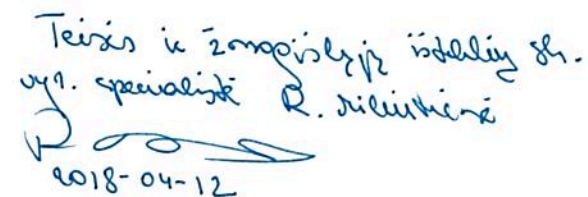 Teisės ir žmogiškųjų išteklių sk.
vyr. specialistė R.
2018-04-12